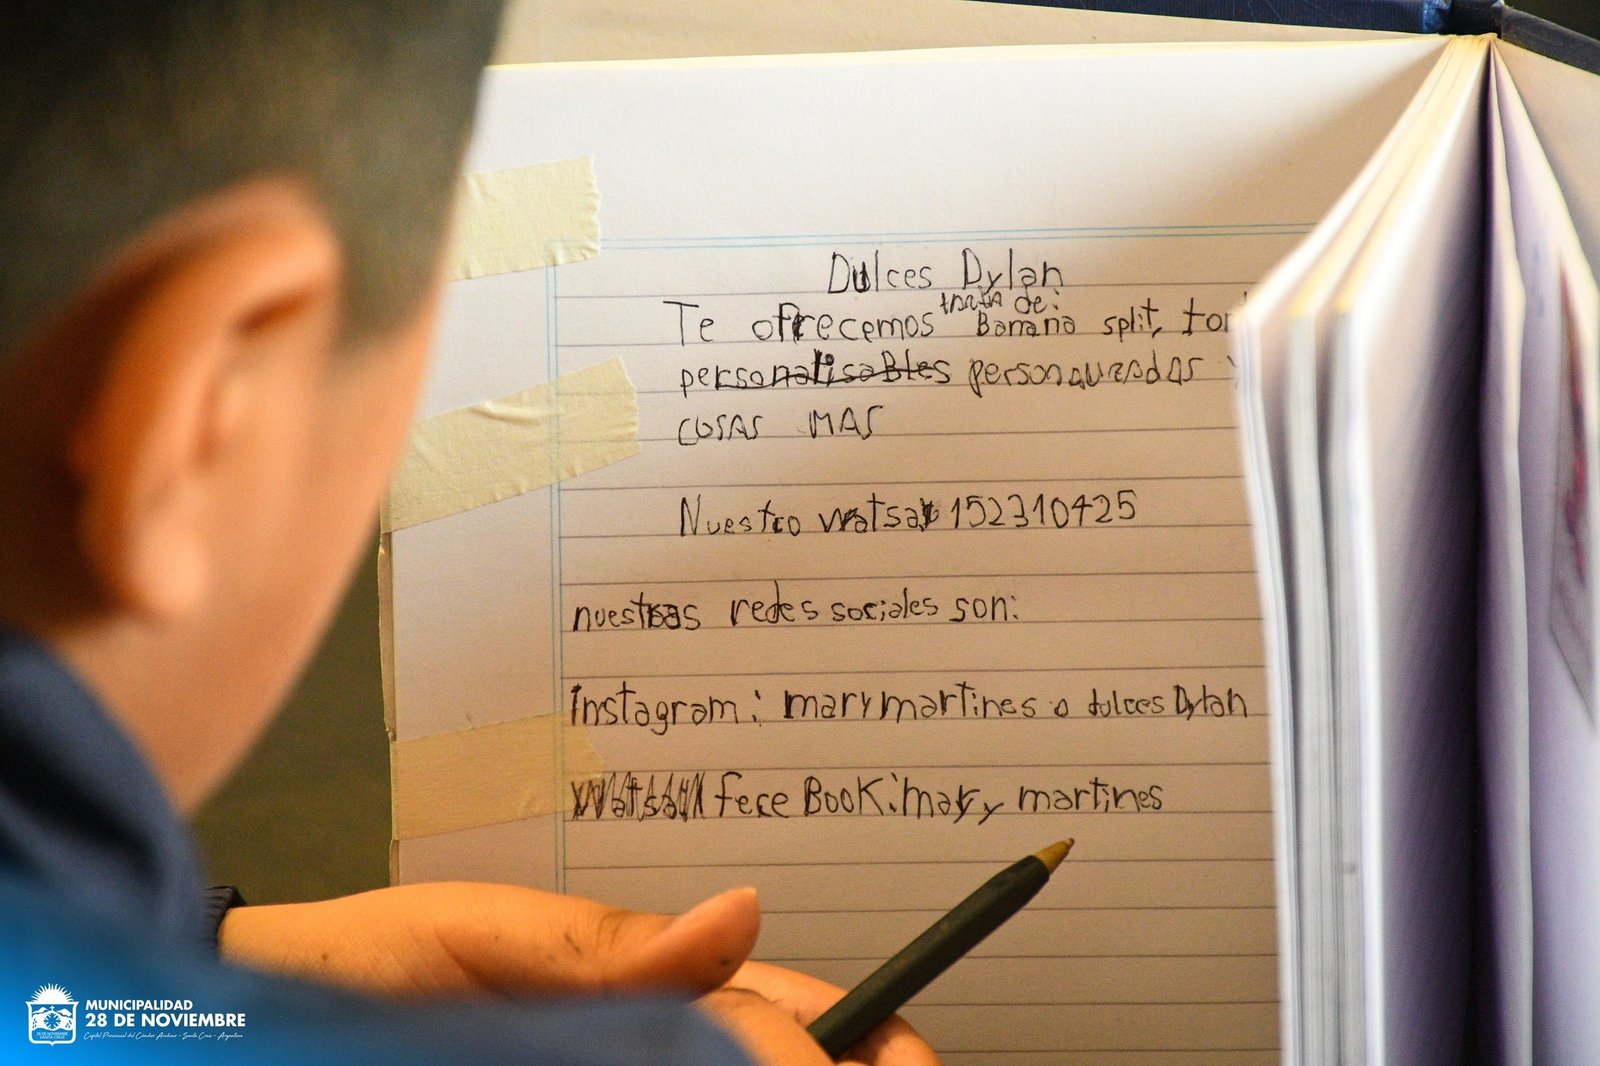 Dulces Dylan
Te ofrecemos torta de: Banana split,
personalisables personalizadas
cosas MAS
Nuestro watsap 152310425
nuestras redes sociales son:
instagram: mary martines o dulces Dylan
watsap feceBook: mary martines
MUNICIPALIDAD
28 DE NOVIEMBRE
Capital Provincial del Cóndor Andino - Santa Cruz - Argentina